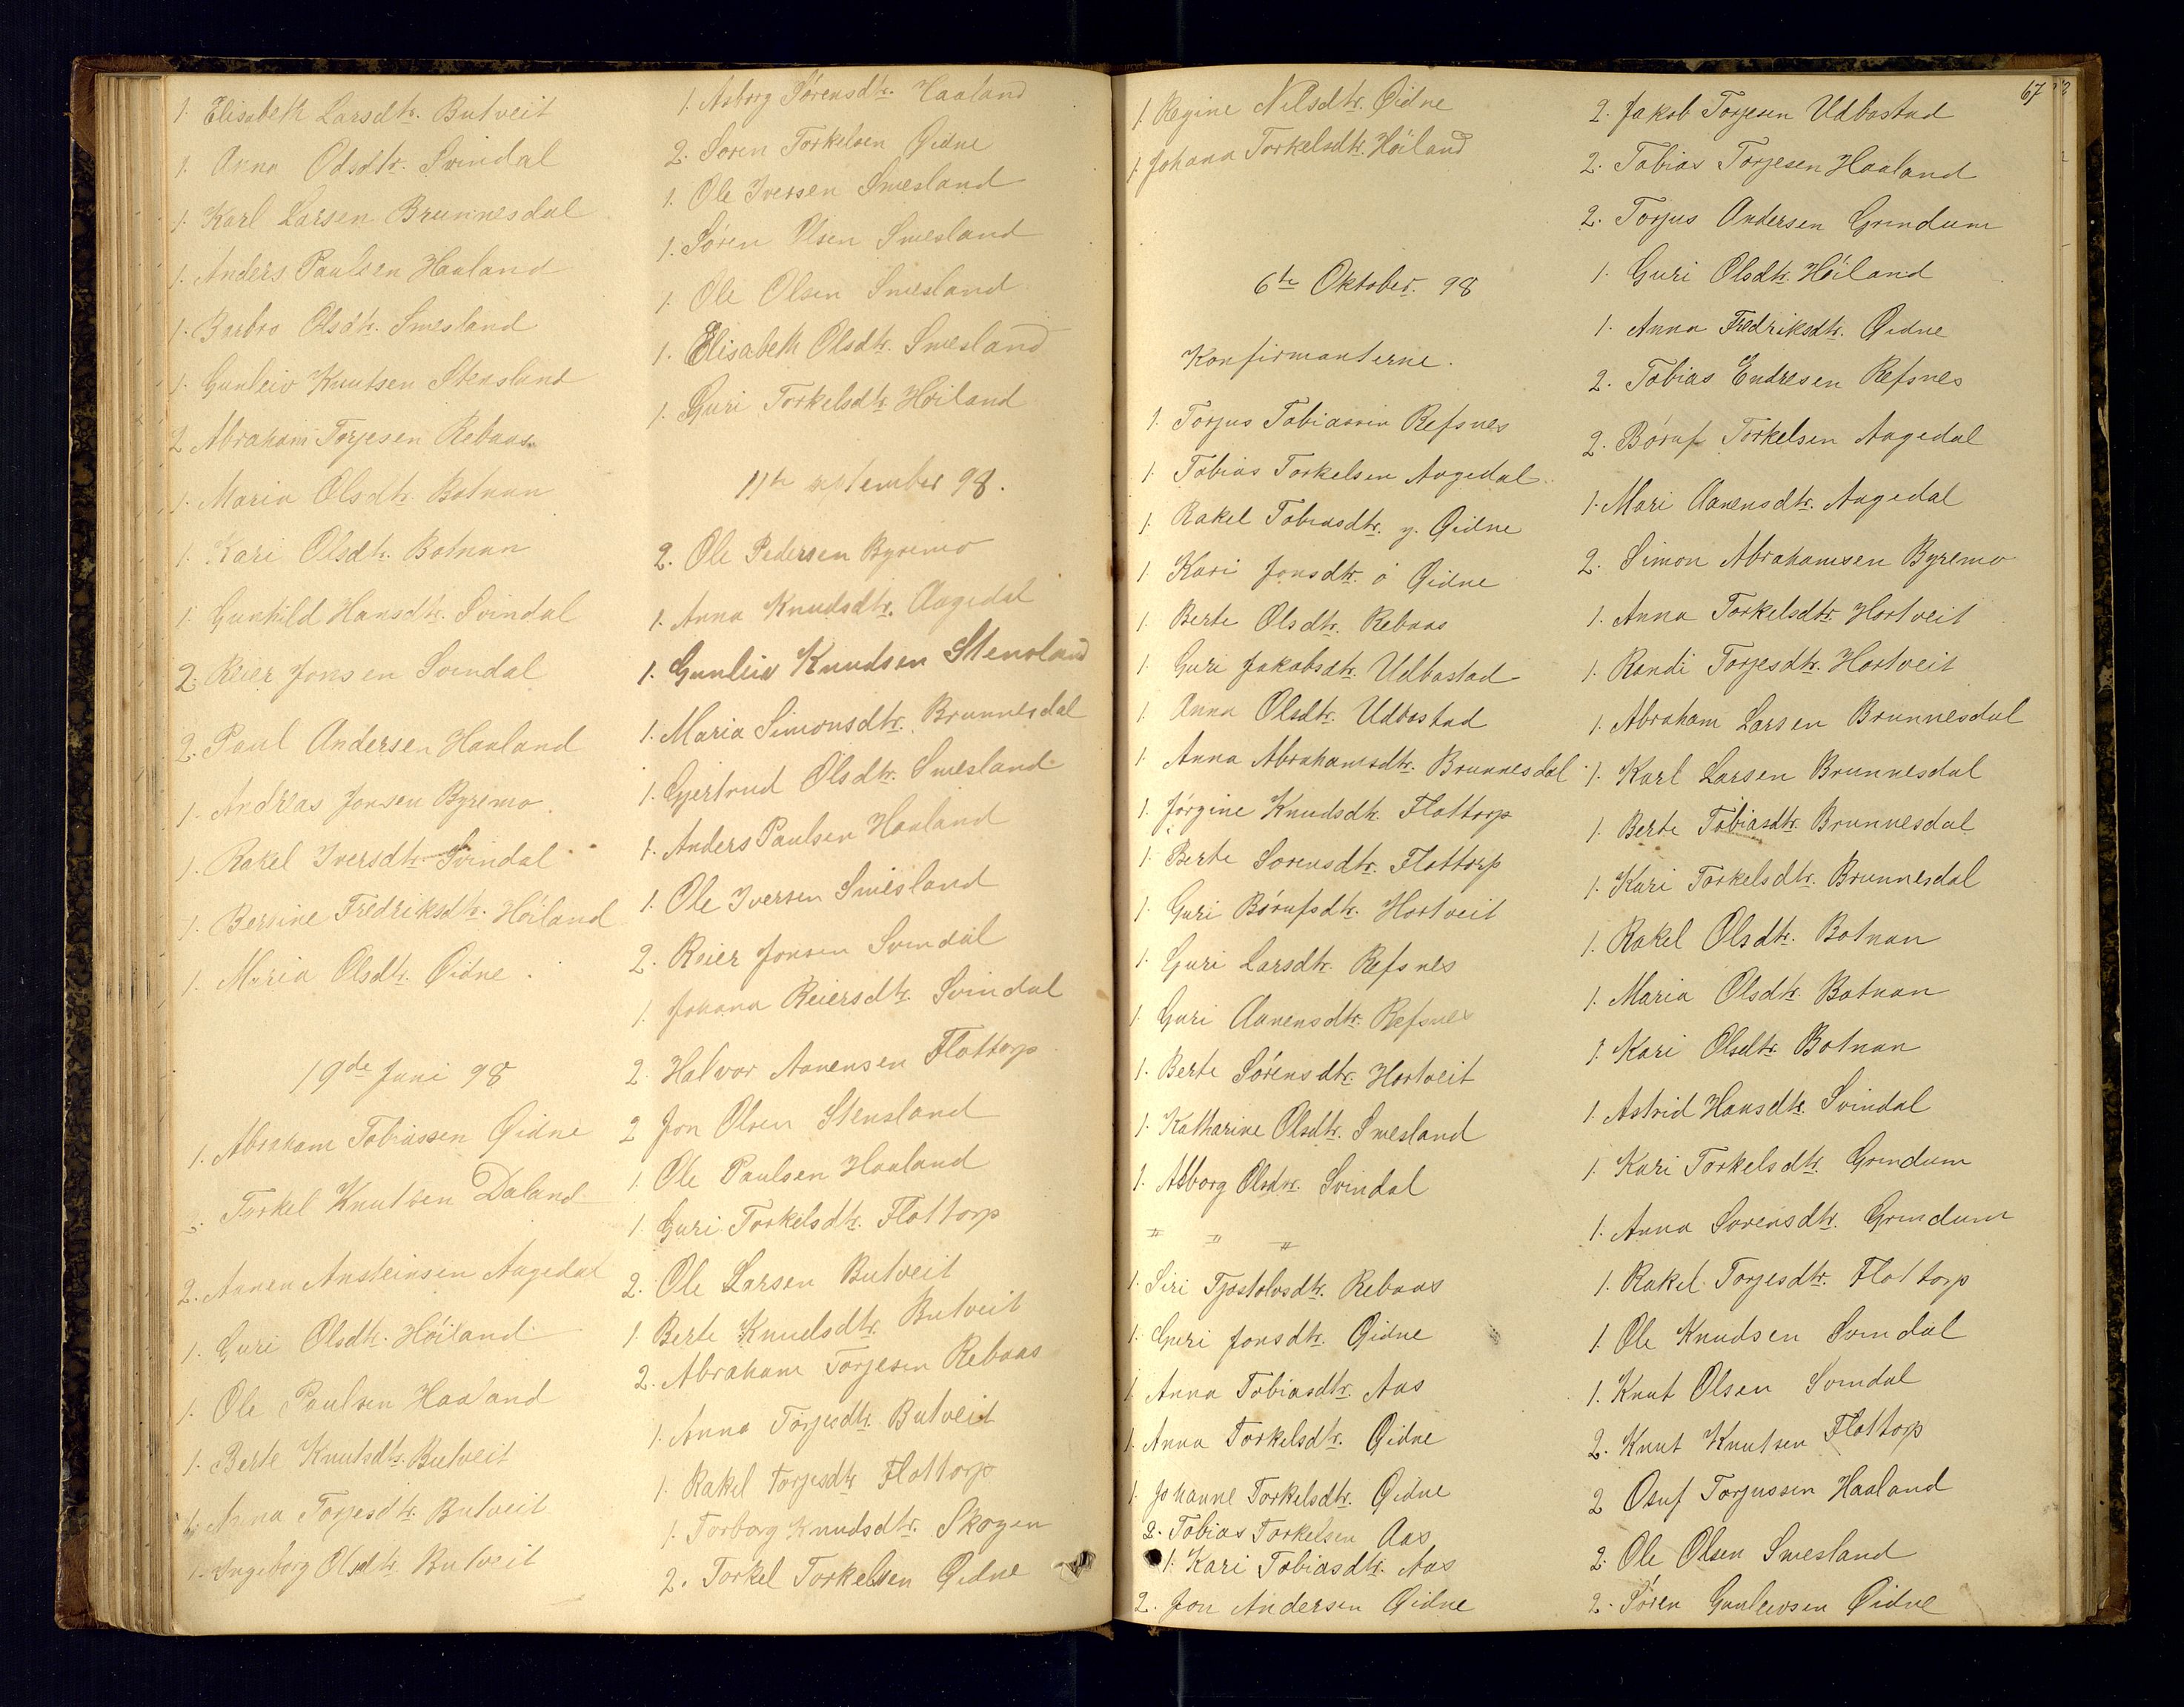 1. Elisabeth Larsdtr. Butveit
1. Anna Odsdtr. Svindal
1. Karl Larsen Brunnesdal
1. Anders Paulsen Haaland
1. Barbro Olsdtr. Smesland
1. Gunleiv Knutsen Stensland
2. Abraham Torjesen Rebaas
1. Maria Olsdtr. Botnan
1. Kari Olsdtr. Botnan
1. Gunhild Hansdtr. Svindal
2. Reier Jonsen Svindal
2. Paul Andersen Haaland
1. Andreas Jonsen Byremo.
1. Rakel Iversdtr. Svindal
1. Bersine Fredriksdtr. Höiland
1. Maria Olsdtr. Øidne.
19de Juni 98
1. Abraham Tobiassen Øidne
2. Torkel Knutsen Daland
2. Aanen Ansteinsen Aagedal
1. Guri Olsdtr. Höiland
1. Ole Paulsen Haaland
1. Berte Knutsdtr. Butveit
1. Anna Torjesdtr. Butveit
1. Ingeborg Olsdtr. Butveit
1. Asborg Sörensdtr. Haaland
2. Sören Torkelsen Øidne
1. Ole Iversen Smesland
1. Sören Olsen Smesland
1. Ole Olsen Smesland
1. Elisabeth Olsdtr. Smesland
1. Guri Torkelsdtr. Höiland
11te september 98.
2. Ole Pedersen Byremo
1. Anna Knudsdtr. Aagedal
1. Gunleiv Knudsen Stensland
1. Maria Simonsdtr. Brunnesdal
1. Gjertrud Olsdtr. Smesland
1. Anders Paulsen Haaland
1. Ole Iversen Smesland
2. Reier Jonsen Svindal
1. Johana Reiersdtr. Svindal
2. Halvor Aanensen Flottorp
2 Jon Olsen Stensland
1. Ole Paulsen Haaland
1. Guri Torkelsdtr. Flottorp
2. Ole Larsen Butveit
1. Berte Knudsdtr. Butveit
2. Abraham Torjesen Rebaas
1. Anna Torjesdtr. Butveit
1. Rakel Torjesdtr Flottorp
1. Torborg Knudsdtr. Skogen
2. Torkel Torkelsen Øidne
1. Regine Nilsdtr. Øidne
1. Johana Torkelsdtr. Höiland
6te Oktober. 98
Konfirmanterne.
1. Torjus Tobiassen Refsnes
1. Tobias Torkelsen Aagedal
1. Rakel Tobiasdtr. y. Øidne
1. Kari Jonsdtr. ö Øidne
1. Berte Olsdtr. Rebaas
1. Guri Jakobsdtr. Udbastad
1. Anna Olsdtr. Udbastad
1. Anna Abrahamsdtr. Brunnesdal
1. Jörgine Knudsdtr. Flottorp
1. Berte Sorensdtr. Flottorp
1. Guri Börufsdtr. Hortveit
1. Guri Larsdtr. Refsnes
1. Guri Aanensdtr. Refsnes
1. Berte Sörensdtr. Hortveit
1. Katharine Olsdtr. Smesland
1. Asborg Olsdtr. Svindal
" " "
1. Siri Tjostolvsdtr. Rebaas
1. Guri Jonsdtr. Øidne
1. Anna Tobiasdtr. Aas
1. Anna Torkelsdtr. Øidne
1. Johanne Torkelsdtr. Øidne
2. Tobias Torkelsen Aas
1. Kari Tobiasdtr. Aas
2. Jon Andersen Øidne
67
2. Jakob Torjesen Udbastad
2. Tobias Torjesen Haaland
2. Torjus Andersen Grindum
1. Guri Olsdtr. Höiland
1. Anna Fredriksdtr. Øidne
2. Tobias Endresen Refsnes
2. Böruf Torkelsen Aagedal
1. Mari Aanensdtr. Aagedal
2. Simon Abrahamsen Byremo
1. Anna Torkelsdtr. Hortveit
1. Randi Torjesdtr. Hortveit
1. Abraham Larsen Brunnesdal
1. Karl Larsen Brunnesdal
1. Berte Tobiasdtr. Brunnesdal
1. Kari Torkelsdtr. Brunnesdal
1. Rakel Olsdtr. Botnan
1. Maria Olsdtr. Botnan
1. Kari Olsdtr. Botnan
1. Astrid Hansdtr. Svindal
1. Kari Torkelsdtr. Grindum
1. Anna Sorensdtr. Grindum
1. Rakel Torjesdtr. Flottorp
1. Ole Knudsen Svindal
1. Knut Olsen Svindal
2. Knut Knutsen Flottorp
2 Osuf Torjussen Haaland
2. Ole Olsen Smesland
2. Sören Gunleivsen Øidne